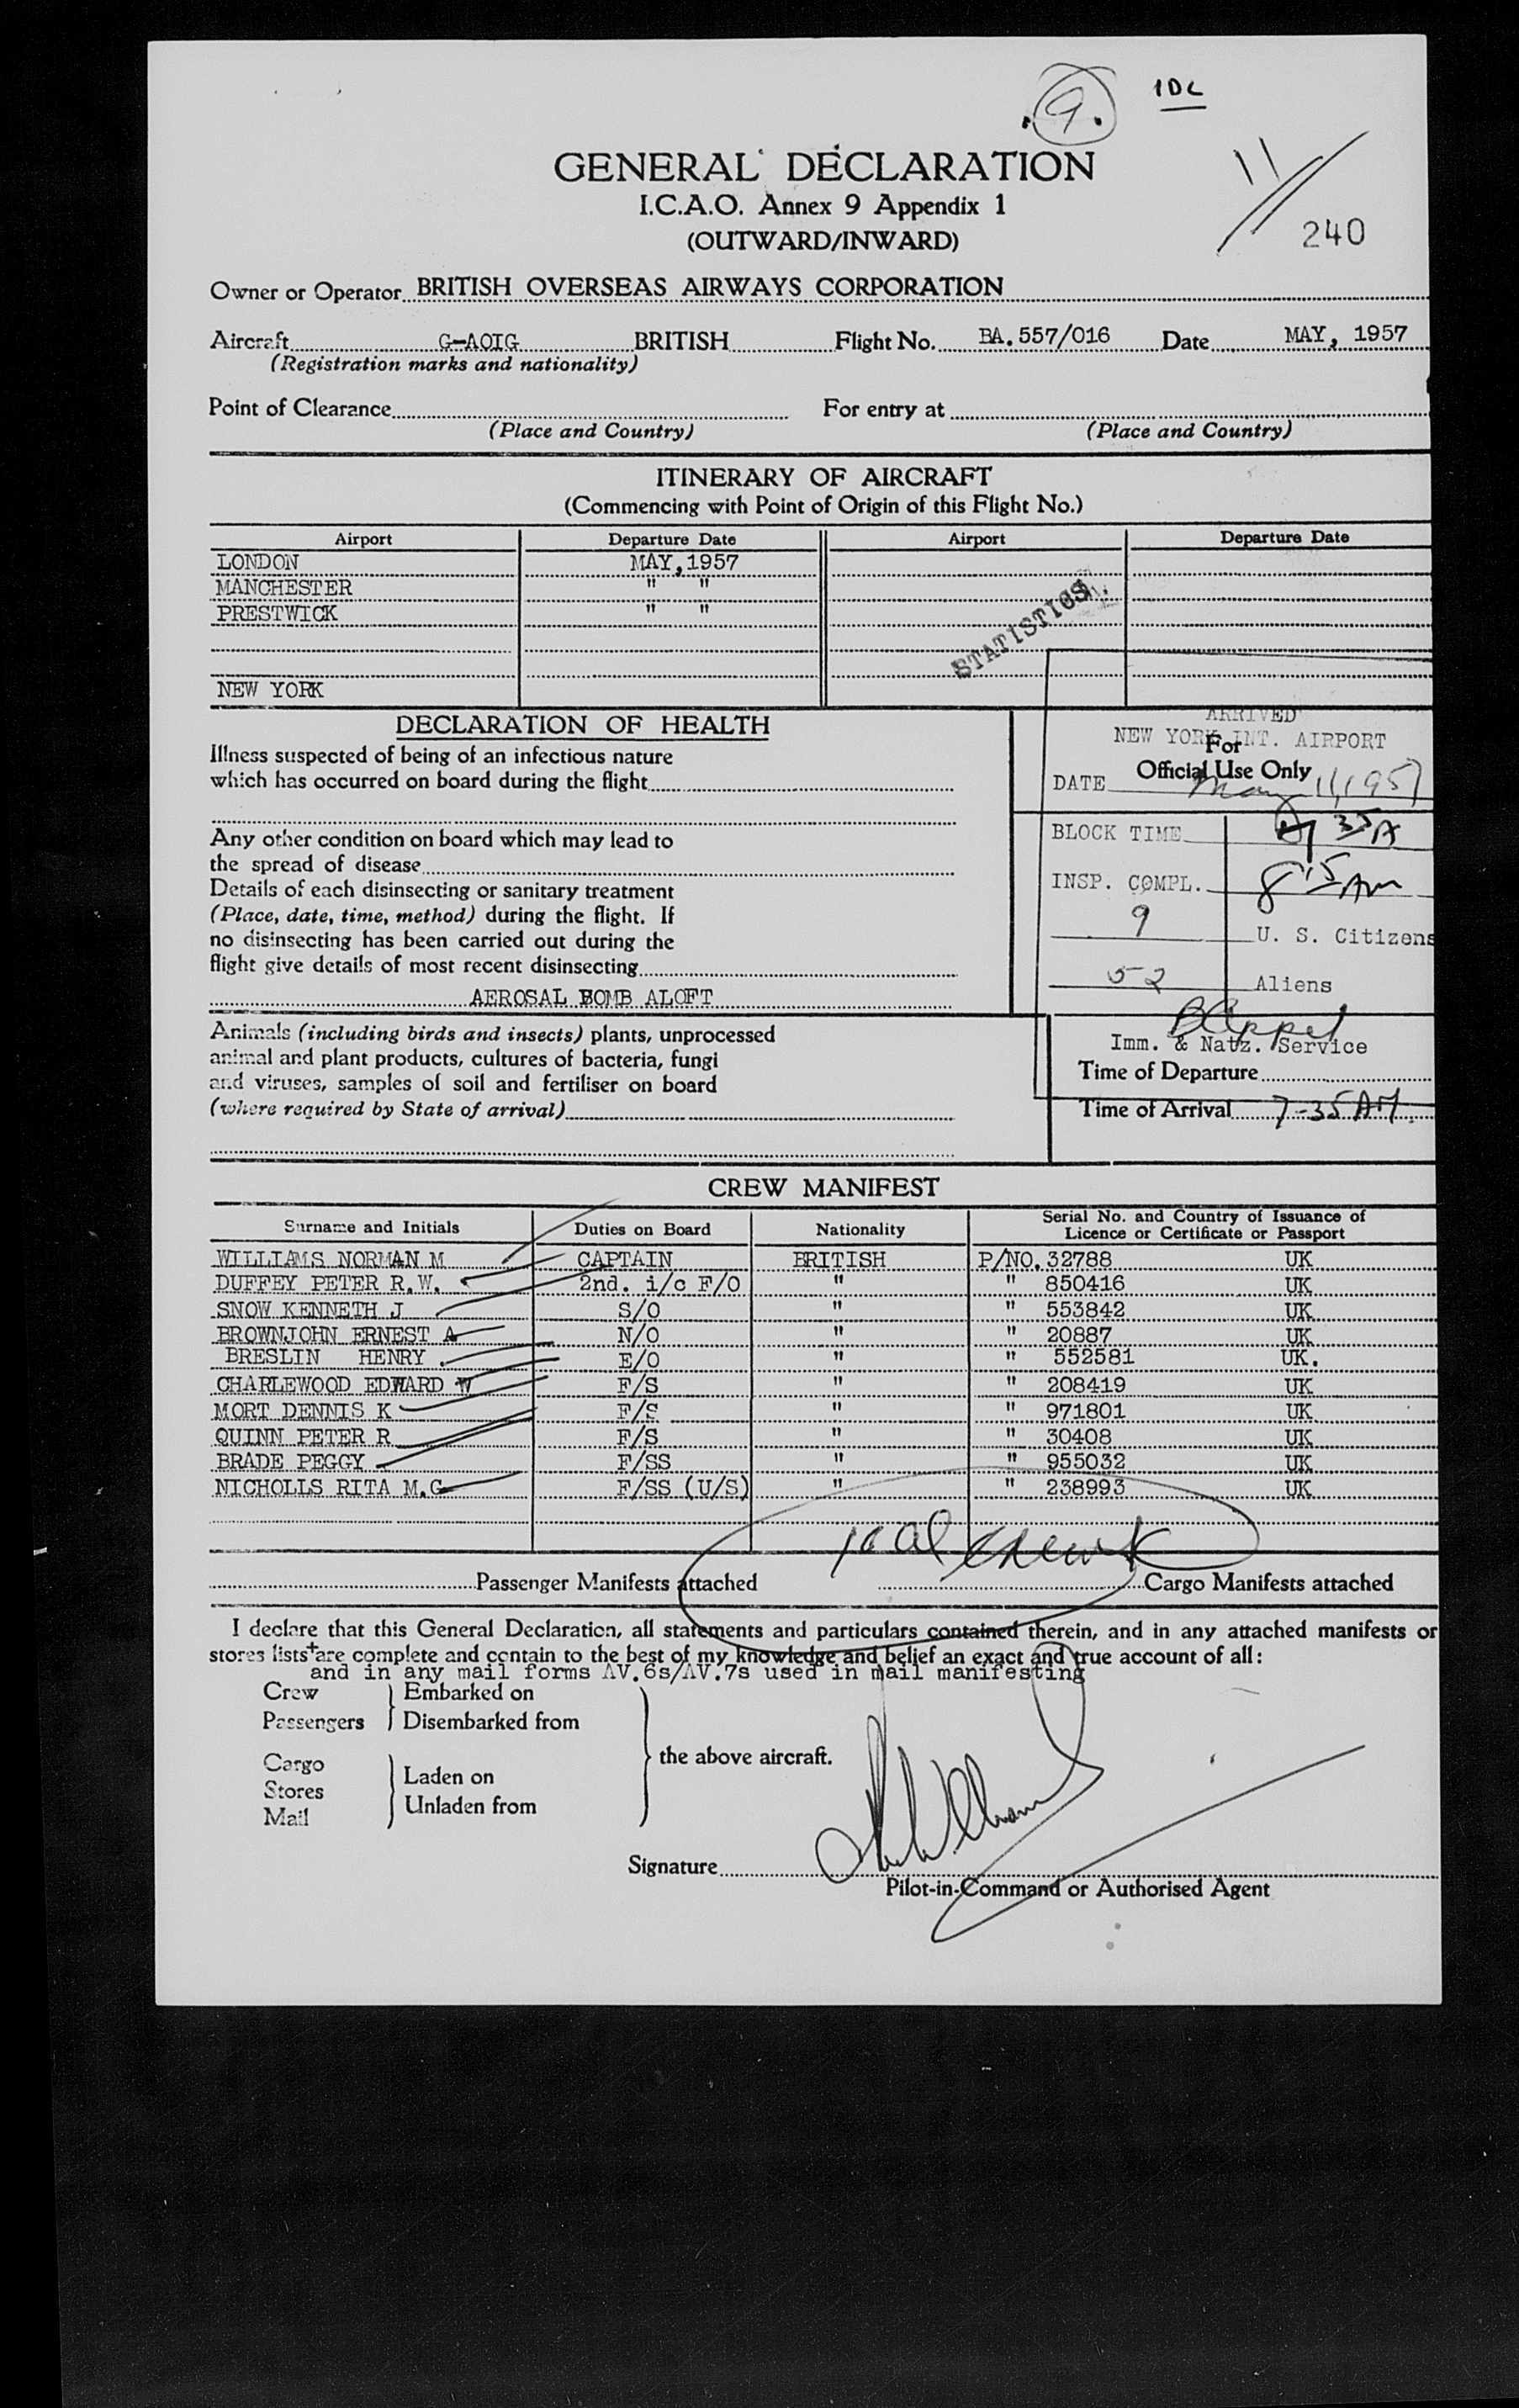 9. 1DC
GENERAL DECLARATION
I.C.A.O. Annex 9 Appendix 1
(OUTWARD/INWARD)
11
240
Owner or Operator BRITISH OVERSEAS AIRWAYS CORPORATION
Aircraft G-AOIG BRITISH Flight No. BA.557/016 Date MAY, 1957
(Registration marks and nationality)
Point of Clearance For entry at
(Place and Country) (Place and Country)
ITINERARY OF AIRCRAFT
(Commencing with Point of Origin of this Flight No.)
Airport Departure Date Airport Departure Date
LONDON MAY,1957
MANCHESTER " "
PRESTWICK " "
STATISTICS
NEW YORK
DECLARATION OF HEALTH
Illness suspected of being of an infectious nature
which has occurred on board during the flight
Any other condition on board which may lead to
the spread of disease
Details of each disinsecting or sanitary treatment
(Place, date, time, method) during the flight. If
no disinsecting has been carried out during the
flight give details of most recent disinsecting
AEROSAL BOMB ALOFT
Animals (including birds and insects) plants, unprocessed
animal and plant products, cultures of bacteria, fungi
and viruses, samples of soil and fertiliser on board
(where required by State of arrival)
ARRIVED
NEW YORK INT. AIRPORT
For
Official Use Only
DATE May 11, 1957
BLOCK TIME 7 35 A
INSP. COMPL. 8 15 Am
9 U. S. Citizens
52 Aliens
B Appel
Imm. & Natz. Service
Time of Departure
Time of Arrival 7-35 AM.
CREW MANIFEST
Surname and Initials Duties on Board Nationality Serial No. and Country of Issuance of
Licence or Certificate or Passport
WILLIAMS NORMAN M CAPTAIN BRITISH P/NO. 32788 UK
DUFFEY PETER R.W. 2nd. i/c F/O " " 850416 UK
SNOW KENNETH J S/O " " 553842 UK
BROWNJOHN ERNEST A N/O " " 20887 UK
BRESLIN HENRY . E/O " " 552581 UK.
CHARLEWOOD EDWARD W F/S " " 208419 UK
MORT DENNIS K F/S " " 971801 UK
QUINN PETER R F/S " " 30408 UK
BRADE PEGGY F/SS " " 955032 UK
NICHOLLS RITA M.G F/SS (U/S) " " 238993 UK
Passenger Manifests attached Cargo Manifests attached
I declare that this General Declaration, all statements and particulars contained therein, and in any attached manifests or
stores lists+are complete and contain to the best of my knowledge and belief an exact and true account of all:
and in any mail forms AV.6s/AV.7s used in mail manifesting
Crew Embarked on
Passengers Disembarked from
the above aircraft.
Cargo
Stores Laden on
Mail Unladen from
Signature
Pilot-in-Command or Authorised Agent